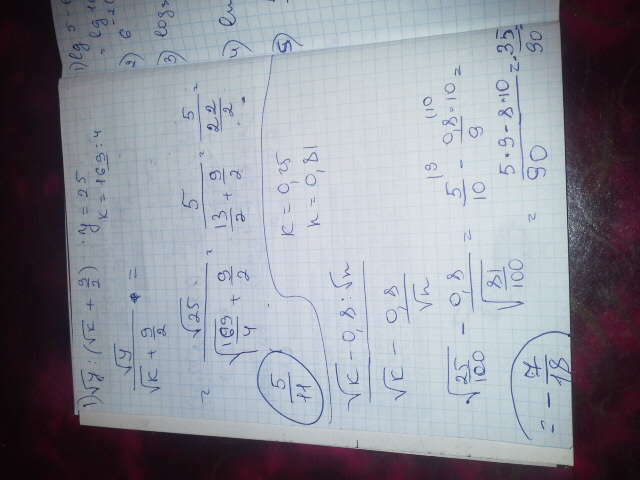 1) √y : (√k + 9/2) · y = 25
k = 169 : 4
√y / (√k + 9/2) =
= √25 / (√(169/4) + 9/2) = 5 / (13/2 + 9/2) = 5 / (22/2) =
5/11
k = 0,25
n = 0,81
√k - 0,8 : √n
√k - 0,8/√n
√(25/100) - 0,8/√(81/100) = 5/10 |9 - 0,8·10/9 |10 =
= (5·9-8·10)/90 = -35/90 =
= -7/18
1) lg 5
= lg 10
2) 6
3) log
4) ln
5)